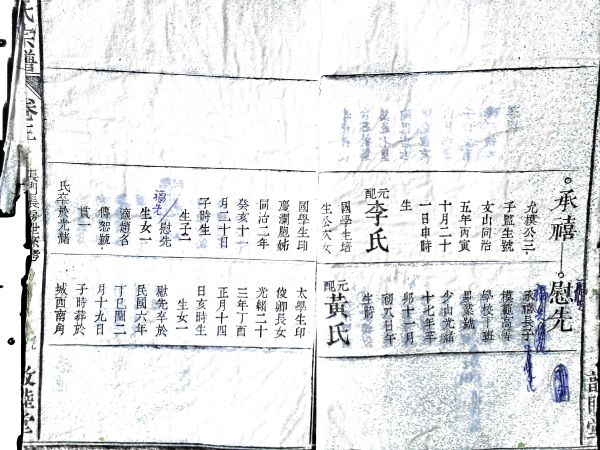 承禧
慰先
允模公三
子監生號
文山同治
五年丙寅
十月二十
一日申時
生
元配李氏
國學生培
生公次女
國學生印
慶瀾胞姊
同治二年
癸亥十一
月二十日
子時生
生子二
慰先
福先
生女一
適趙名
傅恕號
貫一
氏卒於光緒
承禧長子
模範高等
學校十班
畢業號
少山光緒
十七年辛
卯十一月
初八日午
時生
元配黃氏
太學生印
俊卿長女
光緒二十
三年丁酉
正月十四
日亥時生
生女一
慰先卒於
民國六年
丁巳閏二
月十九日
子時葬於
城西南角
氏宗譜
卷之三
長門長房世系考
敦睦堂